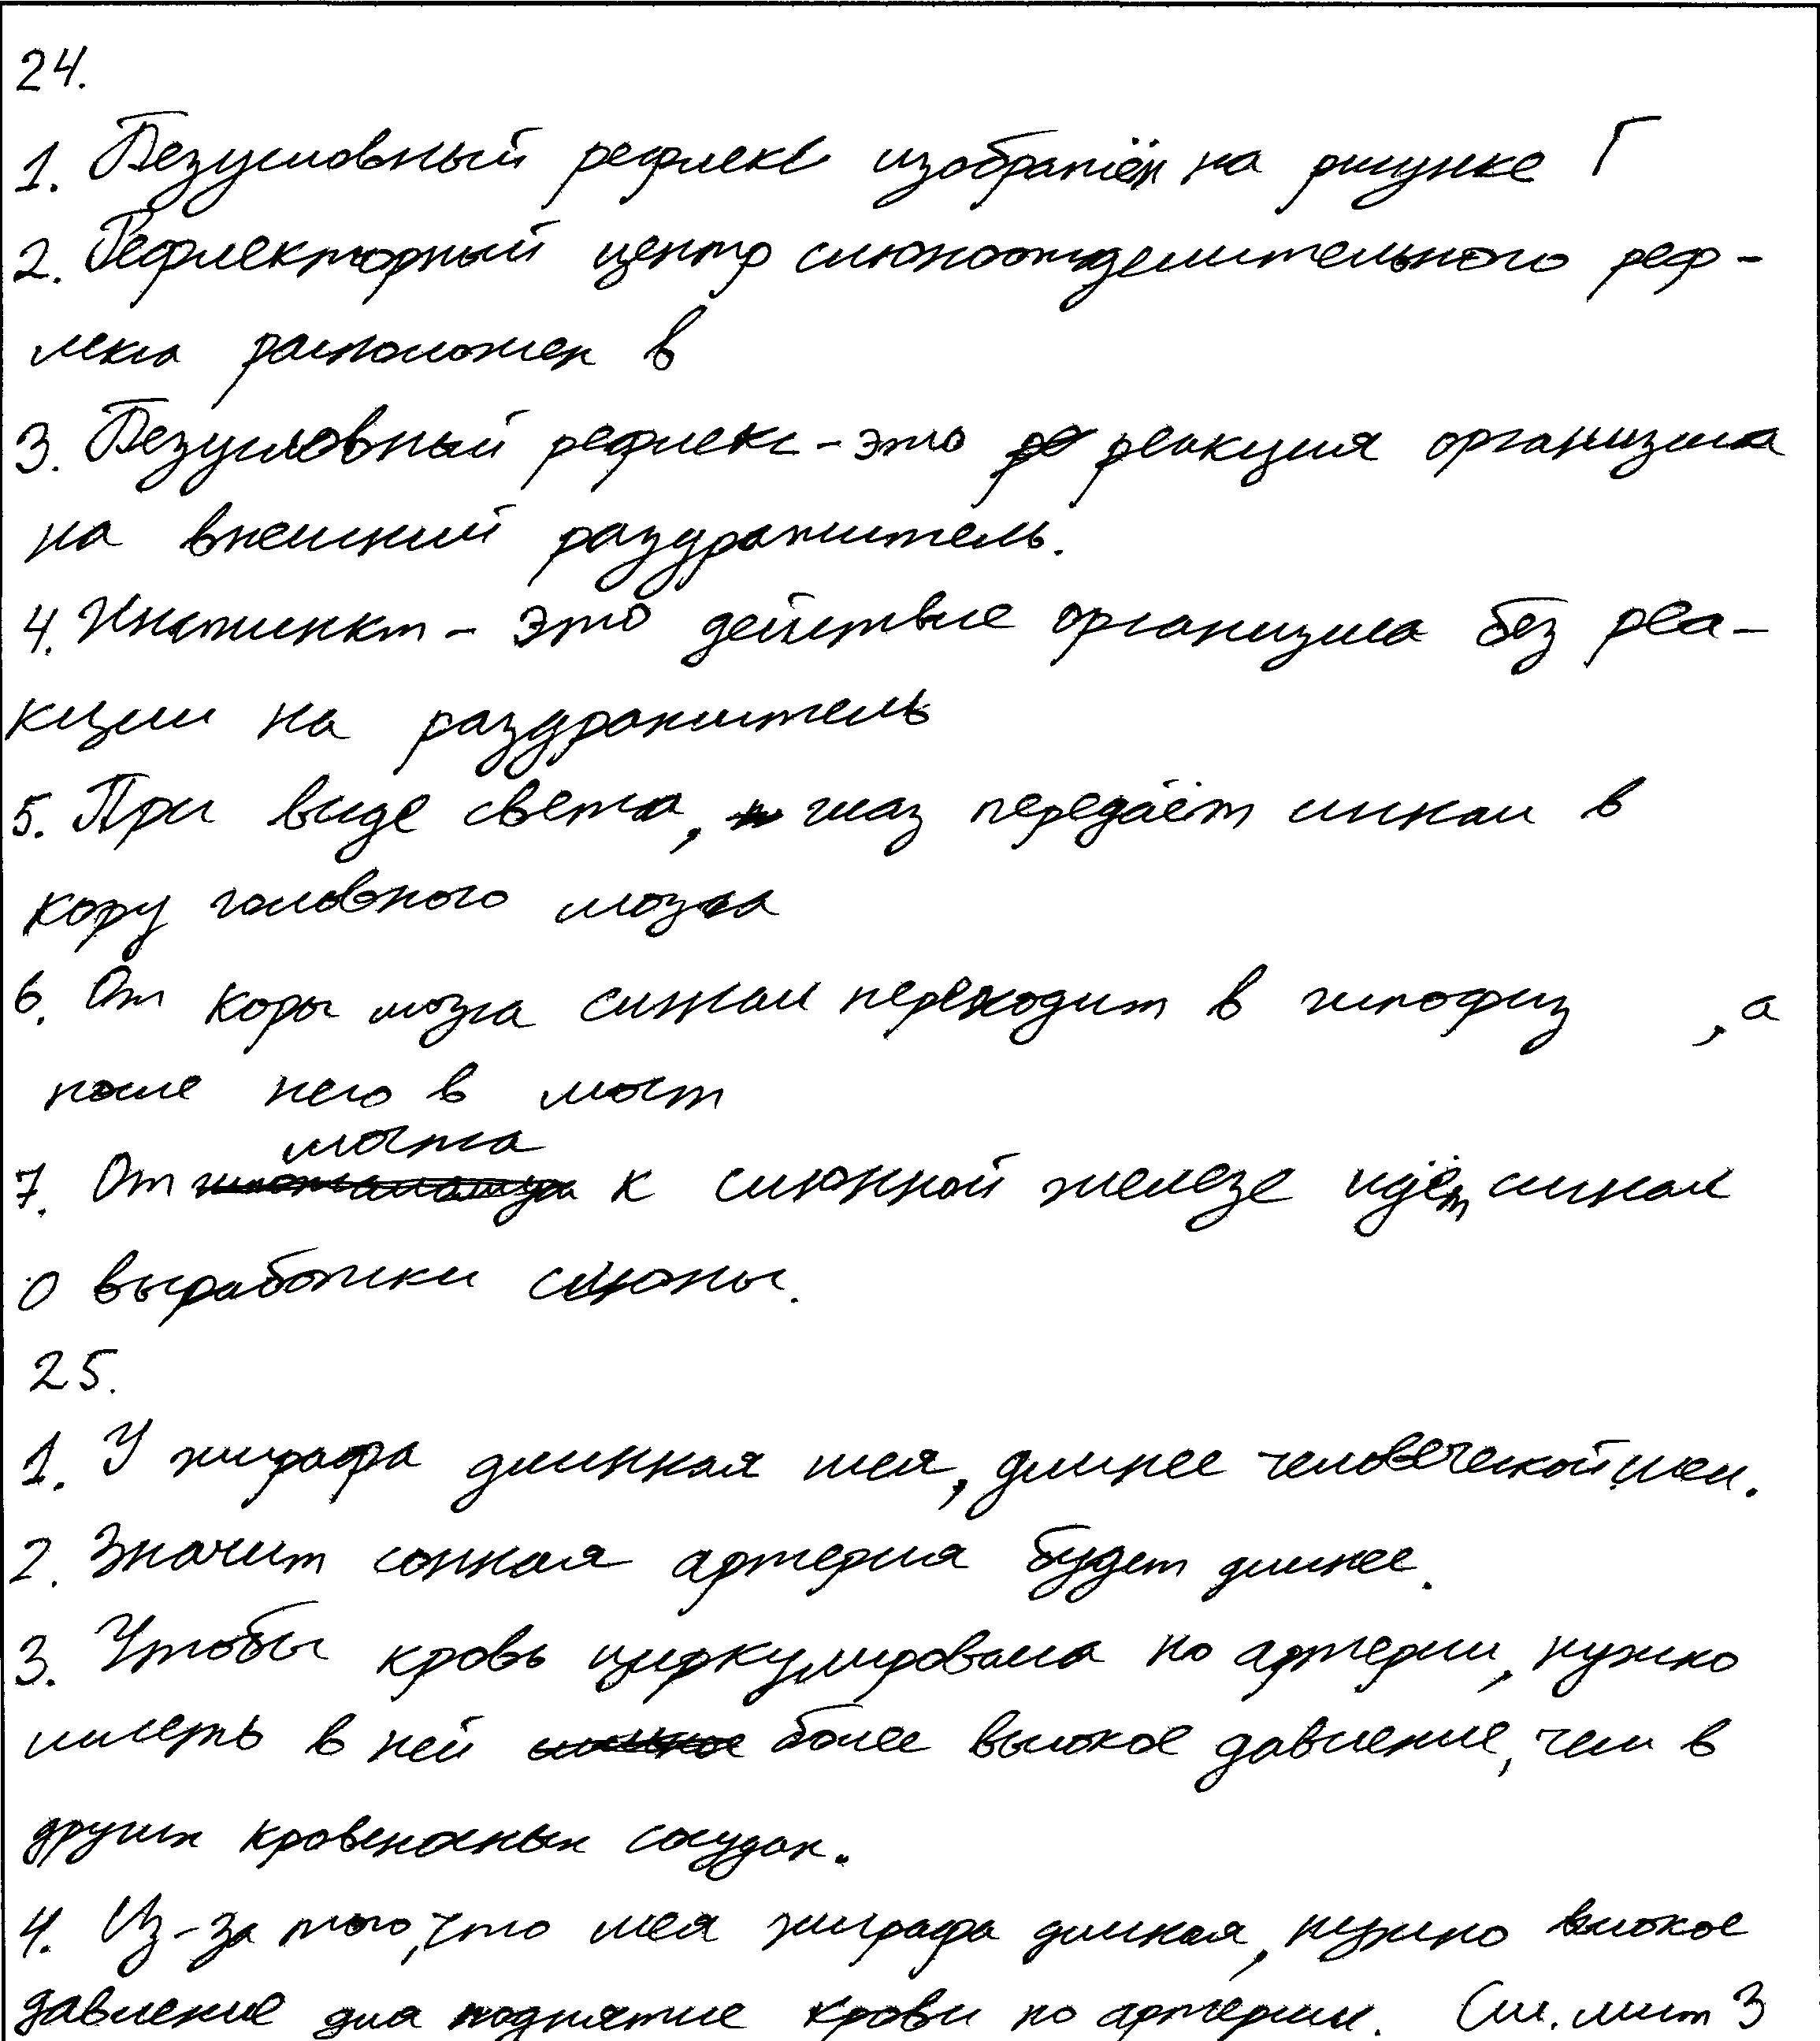 24.
1. Безусловный рефлекс изображён на рисунке Г
2. Рефлекторный центр слюноотделительного реф-
лекса расположен в
3. Безусловный рефлекс - это реакция организма
на внешний раздражитель.
4. Инстинкт - это действие организма без реа-
кции на раздражитель
5. При виде света, глаз передаёт сигнал в
кору головного мозга
6. От коры мозга сигнал переходит в гипофиз , а
после него в мост
моста
7. От к слюнной железе идёт сигнал
о выработки слюны.
25.
1. У жирафа длинная шея, длинее человеческой шеи.
2. Значит сонная артерия будет длинее.
3. Чтобы кровь циркулировала по артерии, нужно
иметь в ней более высокое давление, чем в
других кровеносных сосудах.
4. Из-за того, что шея жирафа длиная, нужно высокое
давление для поднятие крови по артерии. См. лист 3